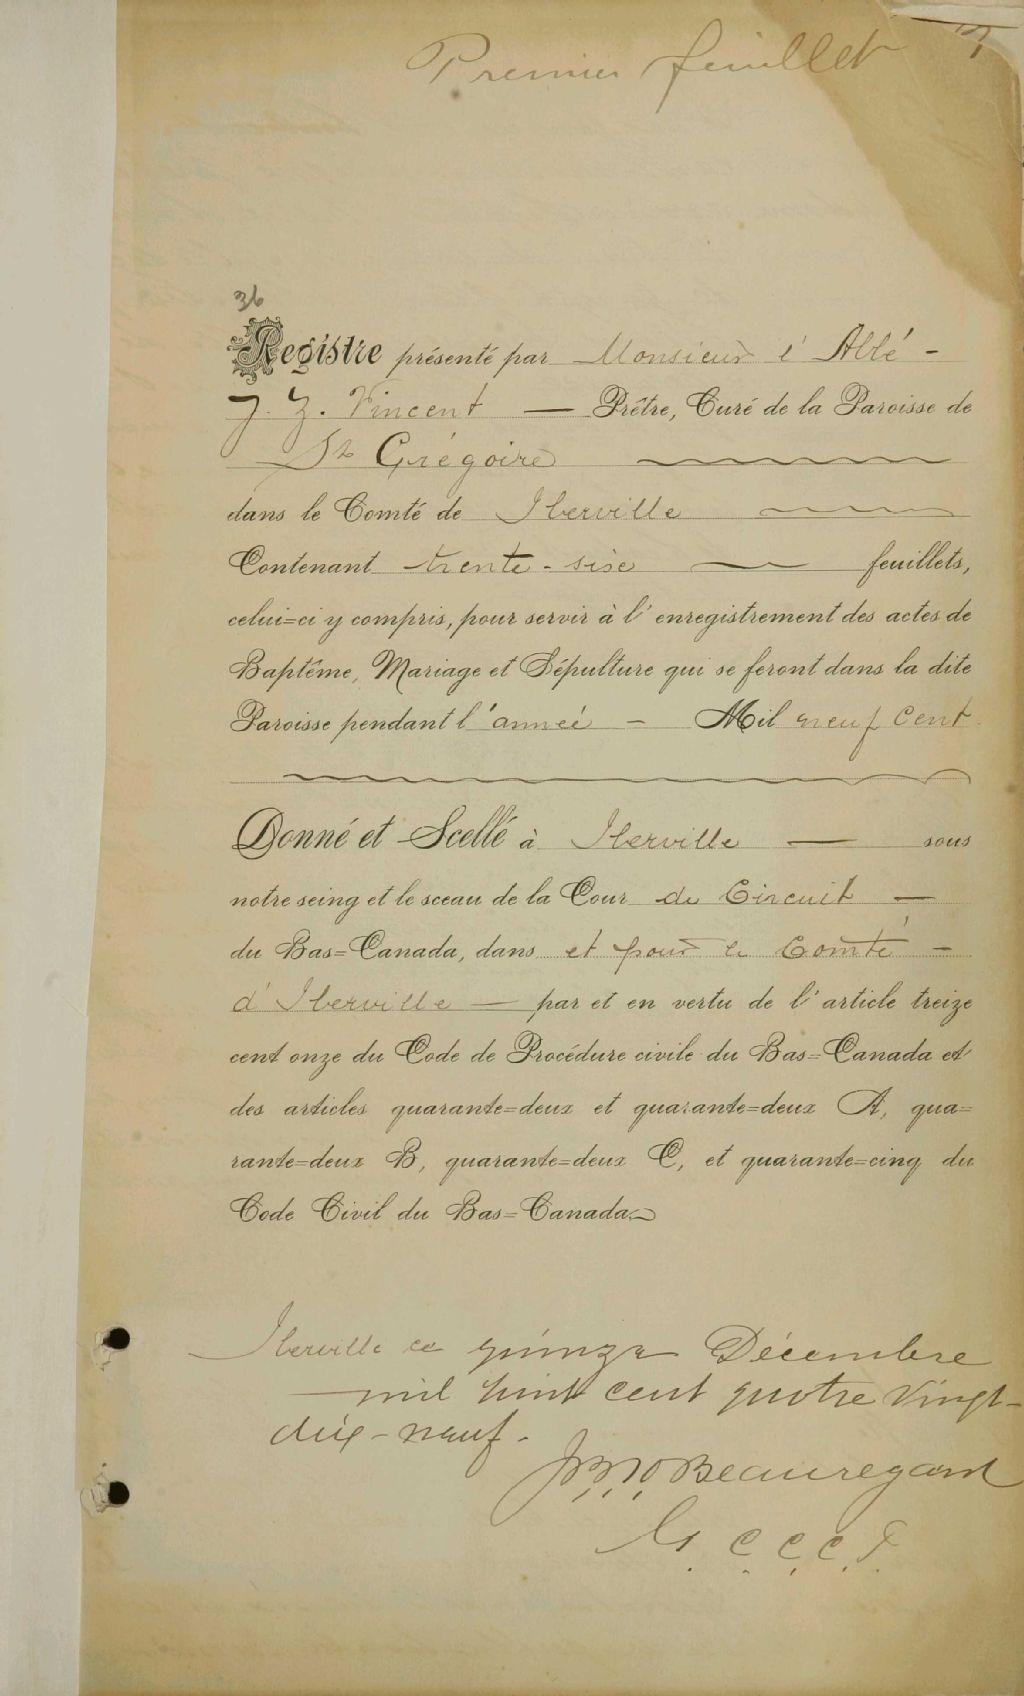 Premier feuillet
36
Registre présenté par Monsieur l'Abbé -
J. Z. Vincent — Prêtre, Curé de la Paroisse de
St Grégoire
dans le Comté de Iberville
Contenant trente-six feuillets,
celui=ci y compris, pour servir à l'enregistrement des actes de
Baptême, Mariage et Sépulture qui se feront dans la dite
Paroisse pendant l'année - Mil neuf Cent
Donné et Scellé à Iberville — sous
notre seing et le sceau de la Cour de Circuit —
du Bas=Canada, dans et pour le Comté -
d'Iberville — par et en vertu de l'article treize
cent onze du Code de Procédure civile du Bas=Canada et
des articles quarante=deux et quarante=deux A, qua=
rante=deux B, quarante=deux C, et quarante=cinq du
Code Civil du Bas=Canada
Iberville ce quinze Décembre
mil huit cent quatre vingt-
dix-neuf.
Beauregard
G. C. C. C. I.